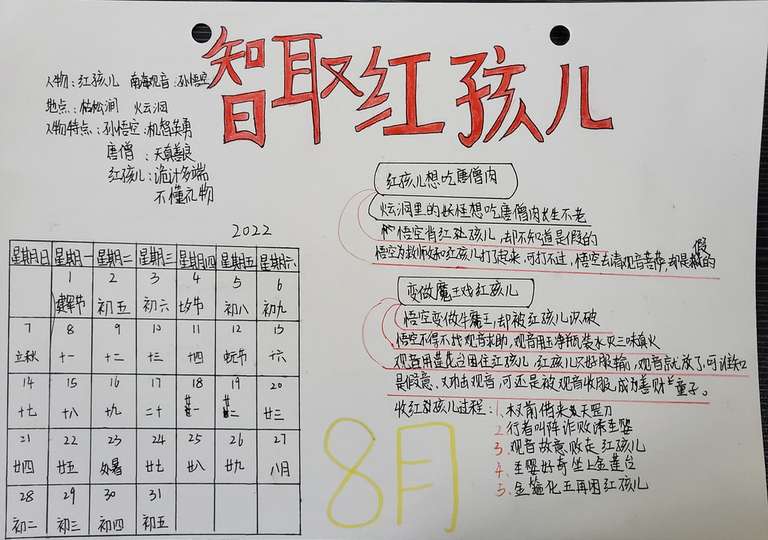 智取红孩儿
人物：红孩儿 南海观音 孙悟空
地点：枯松涧 火云洞
人物特点：孙悟空：机智英勇
唐僧：天真善良
红孩儿：诡计多端
不懂礼物
2022
星期日 星期一 星期二 星期三 星期四 星期五 星期六
1 2 3 4 5 6
建军节 初五 初六 七夕节 初八 初九
7 8 9 10 11 12 13
立秋 十一 十二 十三 十四 中元节 十六
14 15 16 17 18 19 20
十七 十八 十九 二十 廿一 廿二 廿三
21 22 23 24 25 26 27
廿四 廿五 处暑 廿七 廿八 廿九 八月
28 29 30 31
初二 初三 初四 初五
红孩儿想吃唐僧肉
火云洞里的妖怪想吃唐僧肉长生不老
悟空背红孩儿，却不知道是假的
悟空为救师傅和红孩儿打了起来，可打不过，悟空去请观音菩萨，却是假的
变做魔王戏红孩儿
悟空变做牛魔王，却被红孩儿识破
悟空不得不找观音求助，观音用玉净瓶装水灭三味真火
观音用莲花台困住红孩儿，红孩儿只好服输，观音就放了，可谁知
是假意，又攻击观音，可还是被观音收服，成为善财童子。
收红孩儿过程：1、木叉前借来天罡刀
2、行者叫阵诈败诱圣婴
3、观音故意败走红孩儿
4、圣婴好奇坐上金莲台
5、金箍化五再困红孩儿
8月